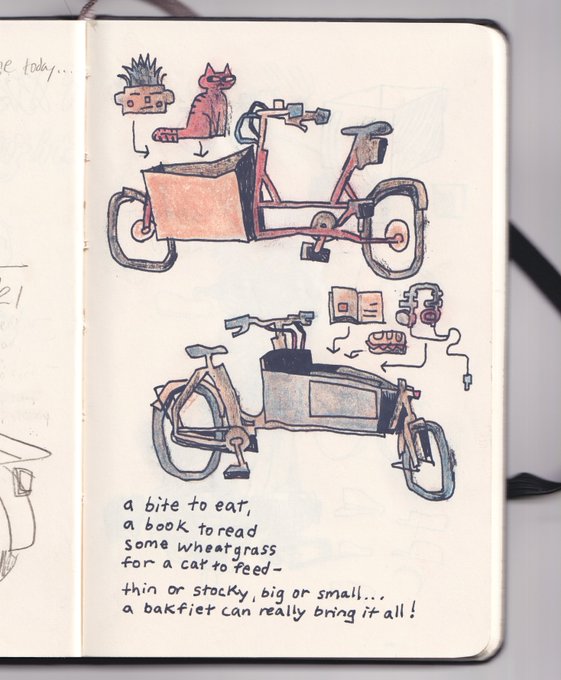 e today...
21
a bite to eat,
a book to read
some wheatgrass
for a cat to feed-
thin or stocky, big or small...
a bakfiet can really bring it all!